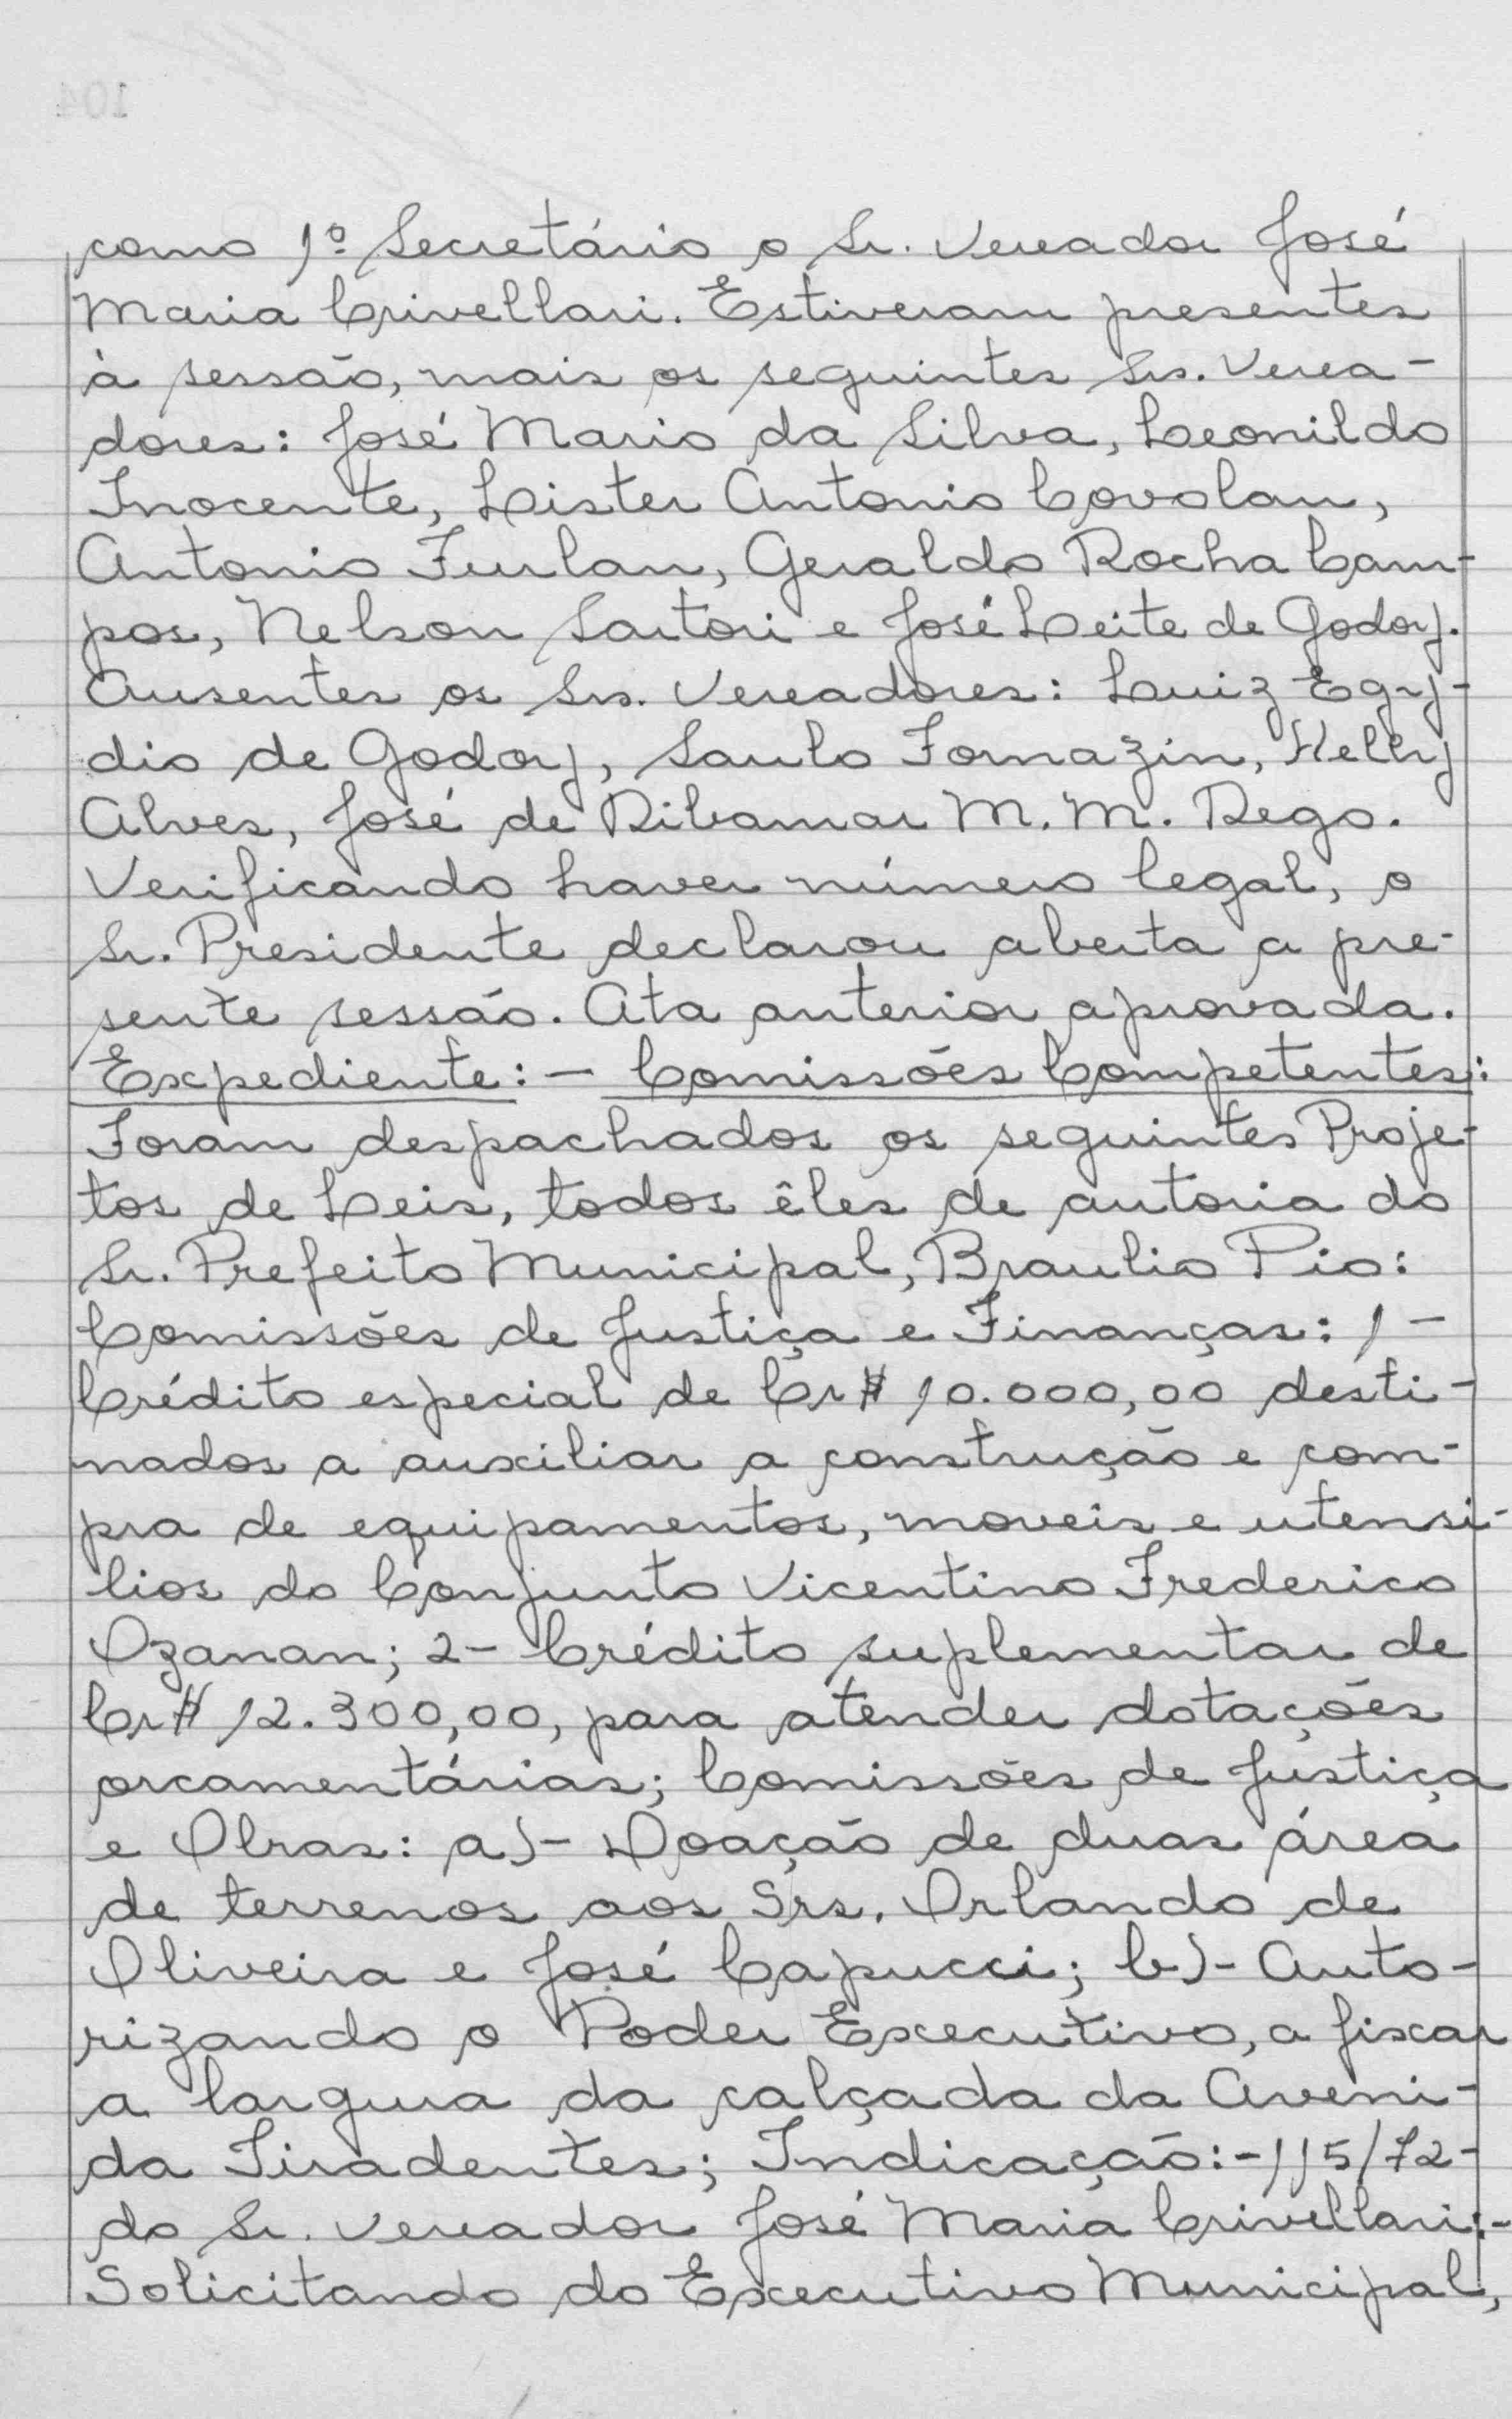 como 1º Secretário o Sr. Vereador José
Maria Crivellari. Estiveram presentes
à sessão, mais os seguintes Srs. Verea-
dores: José Mario da Silva, Leonildo
Inocente, Lister Antonio Covolan,
Antonio Furlan, Geraldo Rocha Cam-
pos, Nelson Sartori e José Leite de Godoy.
Ausentes os Srs. Vereadores: Luiz Egy-
dio de Godoy, Saulo Fornazin, Kelly
Alves, José de Ribamar M. M. Rego.
Verificando haver número legal, o
Sr. Presidente declarou aberta a pre-
sente sessão. Ata anterior aprovada.
Expediente: - Comissões Competentes:
Foram despachados os seguintes Proje-
tos de Leis, todos êles de autoria do
Sr. Prefeito Municipal, Braulio Pio:
Comissões de Justiça e Finanças: 1-
Crédito especial de Cr$ 10.000,00 desti-
nados a auxiliar a construção e com-
pra de equipamentos, moveis e utensi-
lios do Conjunto Vicentino Frederico
Ozanan; 2- Crédito suplementar de
Cr$ 12.300,00, para atender dotações
orcamentárias; Comissões de Justiça
e Obras: a)- Doação de duas área
de terrenos aos Srs. Orlando de
Oliveira e José Capucci; b)- Auto-
rizando o Poder Executivo, a fixar
a largura da calçada da Aveni-
da Tiradentes; Indicação:-115/72-
do Sr. Vereador José Maria Crivellari:-
Solicitando do Executivo Municipal,